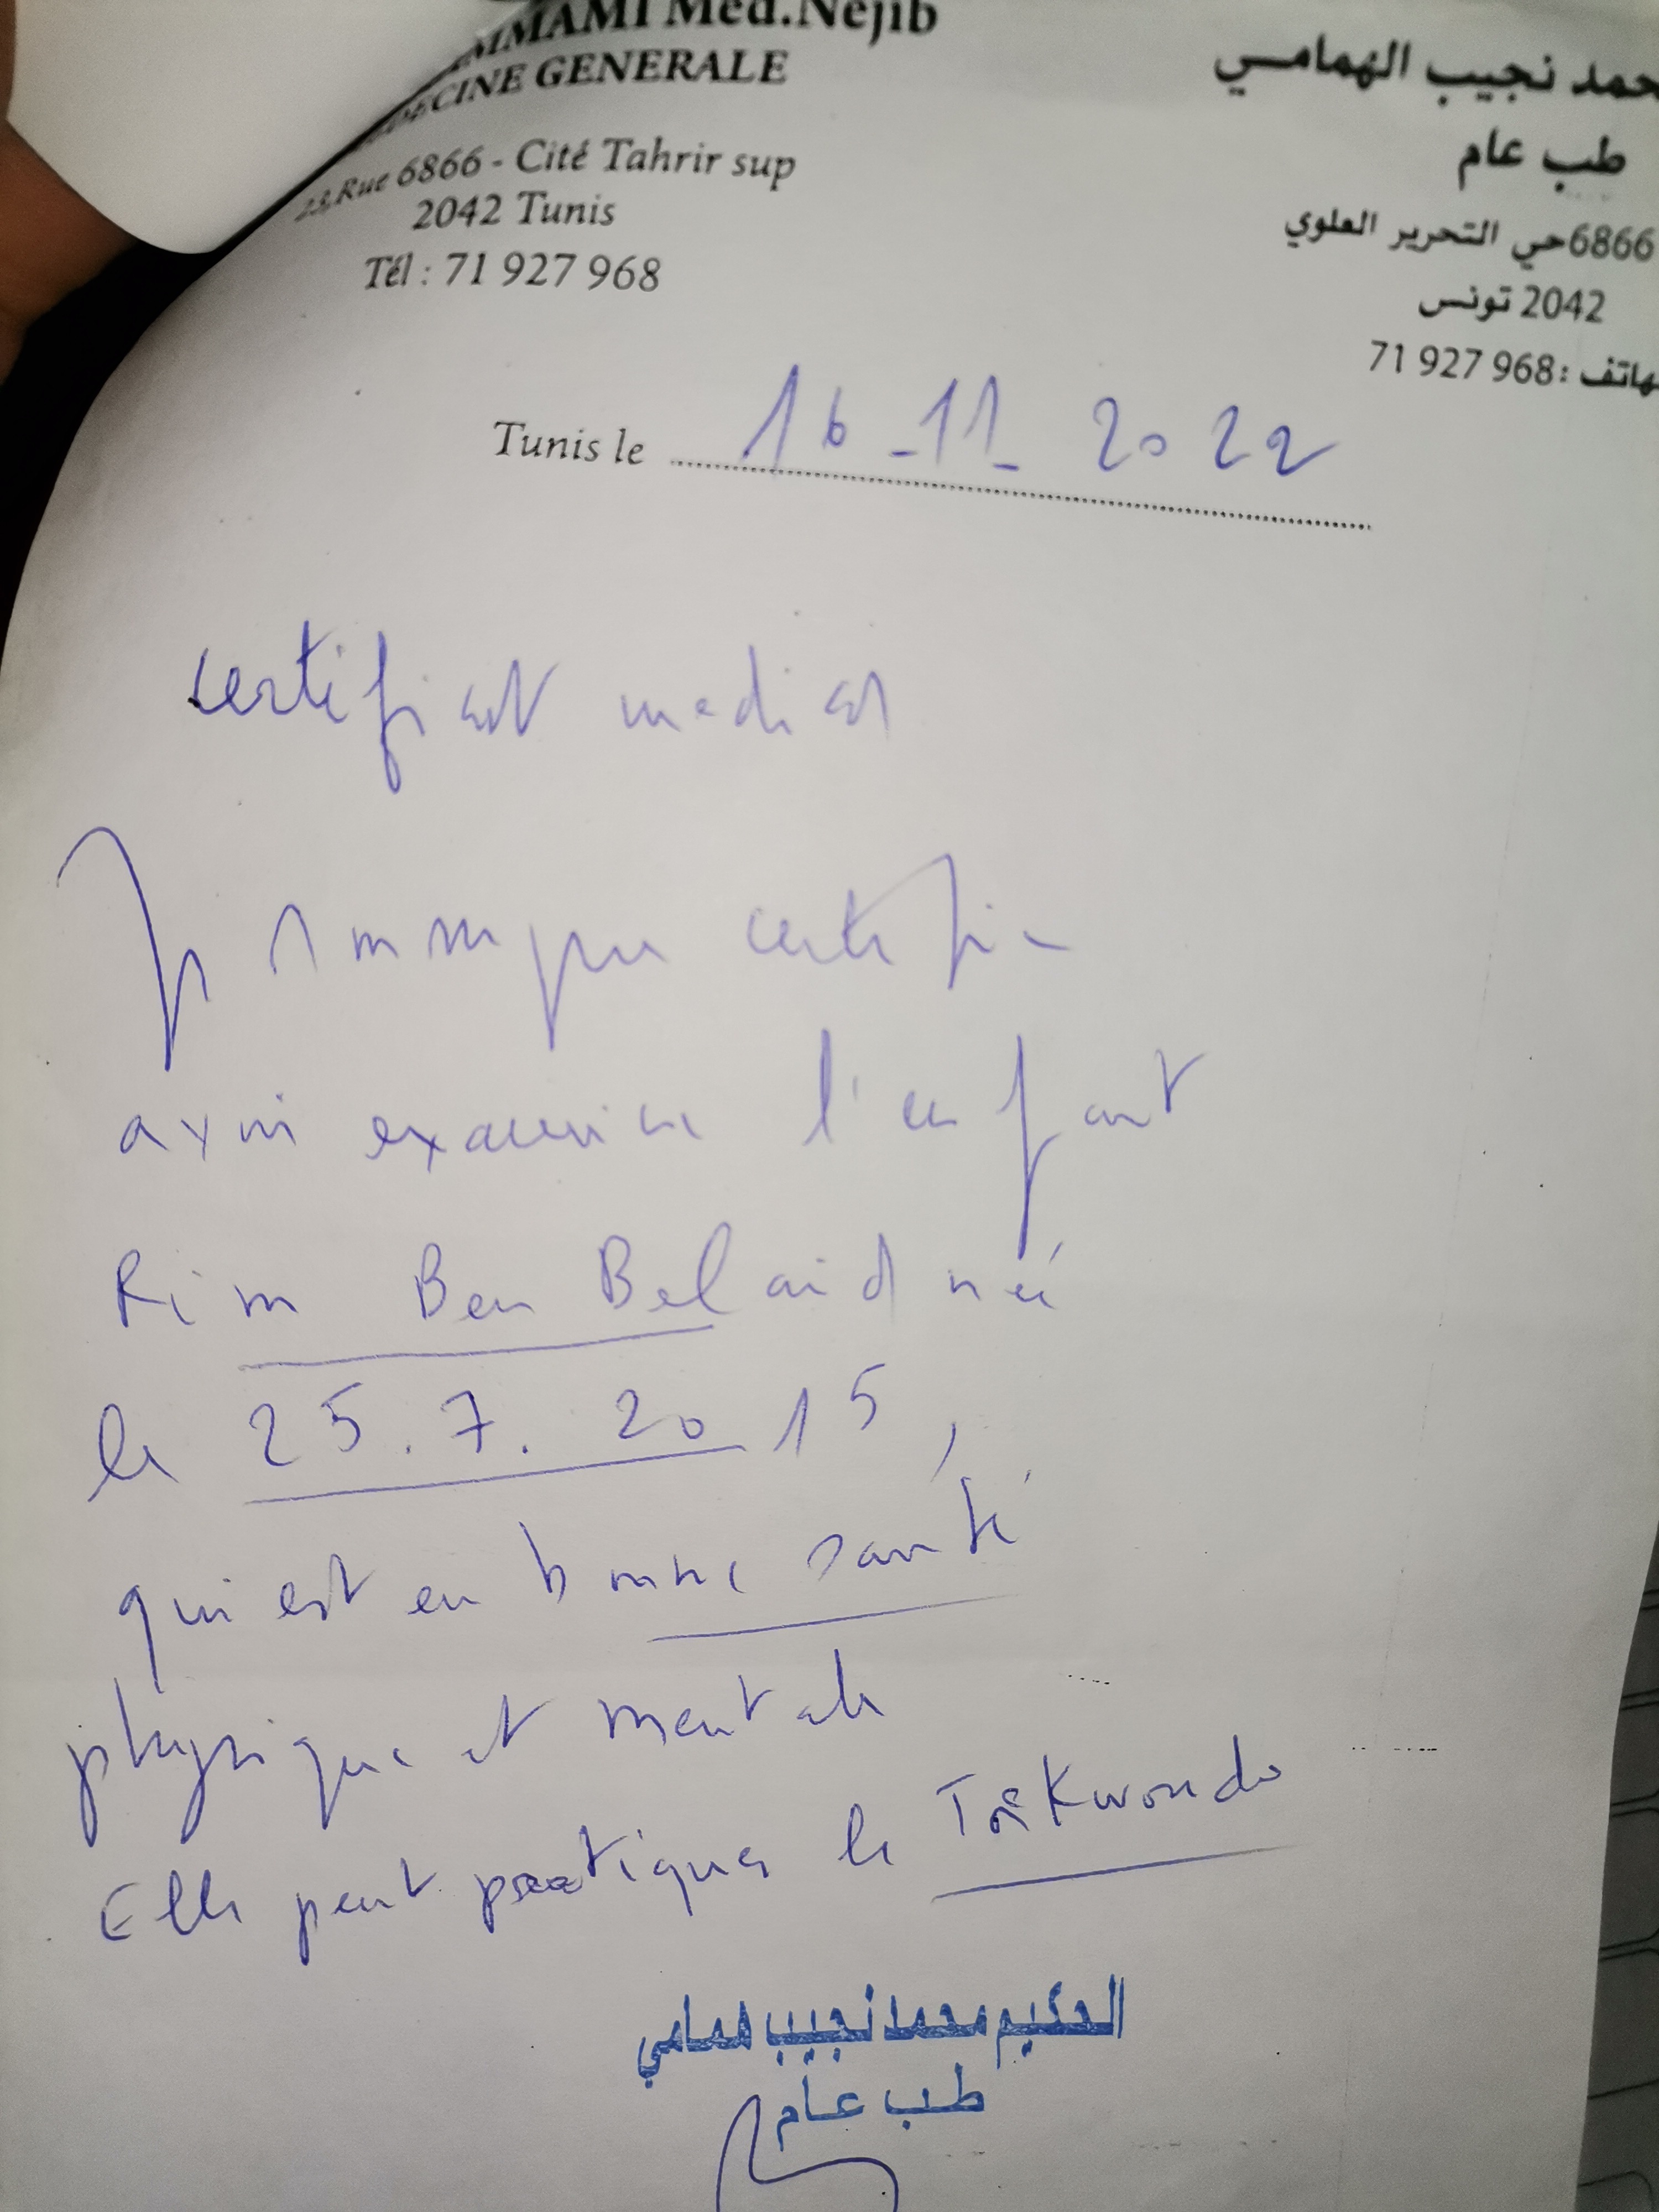 MMAMI Med.Nejib
DECINE GENERALE
23, Rue 6866 - Cité Tahrir sup
2042 Tunis
Tél : 71 927 968
حمد نجيب الهمامي
طب عام
6866 حي التحرير العلوي
2042 تونس
هاتف : 71 927 968
Tunis le 16-11-2022
certificat medical
Je soussigné certifie
avoir examiné l'enfant
Rim Ben Belaid née
le 25.7.2015,
qui est en bonne santé
physique et mentale
Elle peut pratiquer le Taekwondo
الحكيم محمد نجيب همامي
طب عام